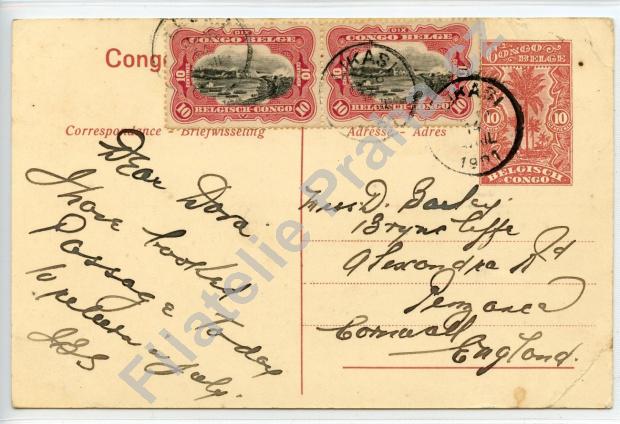 Congo
DIX
CONGO BELGE
10
10
BELGISCH-CONGO
DIX
CONGO BELGE
10
10
BELGISCH-CONGO
CONGO
BELGE
10
10
BELGISCH
CONGO
KASI
KASI
Correspondance Briefwisseling
Adresse Adres
Dear Dora.
I have booked
Passage today
to return July.
Miss D.
Bryn Cliffe
Alexandra Rd
Penzance
Cornwall
England.
Filatelie Praha.cz